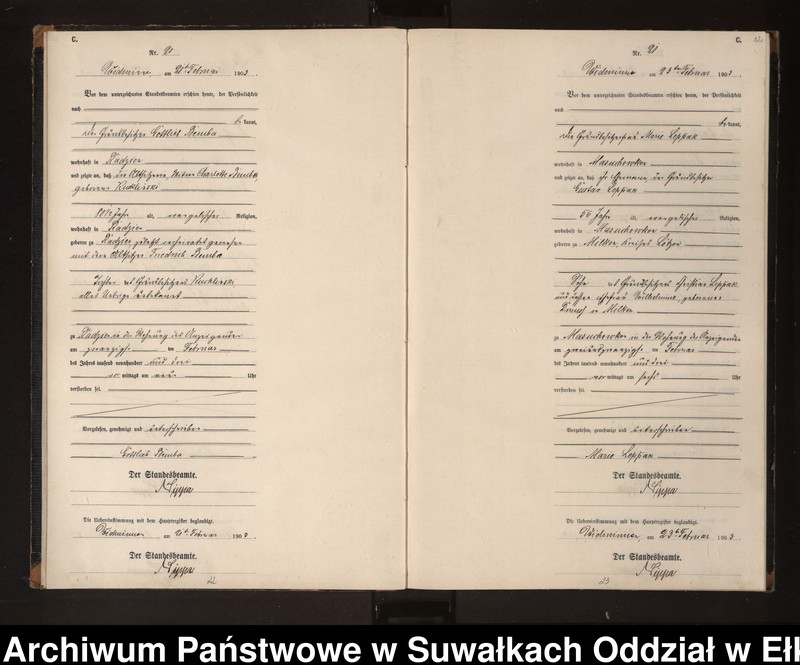 C.
Nr. 21
Widminnen, am 21ten Februar 1903.
Vor dem unterzeichneten Standesbeamten erschien heute, der Persönlichkeit
nach
be kannt,
der Grundbesitzer Gottlieb Dziemba
wohnhaft in Radzien
und zeigte an, daß die Altsitzerin, Witwe Charlotte
geborene
alt, evangelischer Religion,
wohnhaft in Radzien
geboren zu Radzien zuletzt verheiratet gewesen
mit dem Altsitzer Friedrich
Tochter des Grundbesitzers
alles Uebrige unbekannt
zu Radzien in der Wohnung des Anzeigenden
am zwanzigsten Februar
des Jahres tausend neunhundert und drei
vor mittags um neun Uhr
verstorben sei.
Vorgelesen, genehmigt und unterschrieben
Gottlieb
Der Standesbeamte.
Lippa
Die Uebereinstimmung mit dem Hauptregister beglaubigt.
Widminnen, am 21ten Februar 1903
Der Standesbeamte.
Lippa
22
C.
Nr.
Widminnen am 23ten Februar 1903.
Vor dem unterzeichneten Standesbeamten erschien heute, der Persönlichkeit
nach
be kannt,
die Grundbesitzerfrau Marie Loppak
wohnhaft in Masuchowken
und zeigte an, daß ihr Ehemann, der Grundbesitzer
Gustav Loppak
56 Jahr alt, evangelischer Religion,
wohnhaft in Masuchowken
geboren zu Milken, Kreises Lötzen
Sohn des Grundbesitzers Christian Loppak
und dessen Ehefrau Wilhelmine, geborenen
in Milken
zu Masuchowken in der Wohnung der Anzeigenden
am zweiundzwanzigsten Februar
des Jahres tausend neunhundert und drei
vor mittags um sechs Uhr
verstorben sei.
Vorgelesen, genehmigt und unterschrieben
Marie Loppak
Der Standesbeamte.
Lippa
Die Uebereinstimmung mit dem Hauptregister beglaubigt.
Widminnen, am 23ten Februar 1903
Der Standesbeamte.
Lippa
23
Archiwum Państwowe w Suwałkach Oddział w Ełk